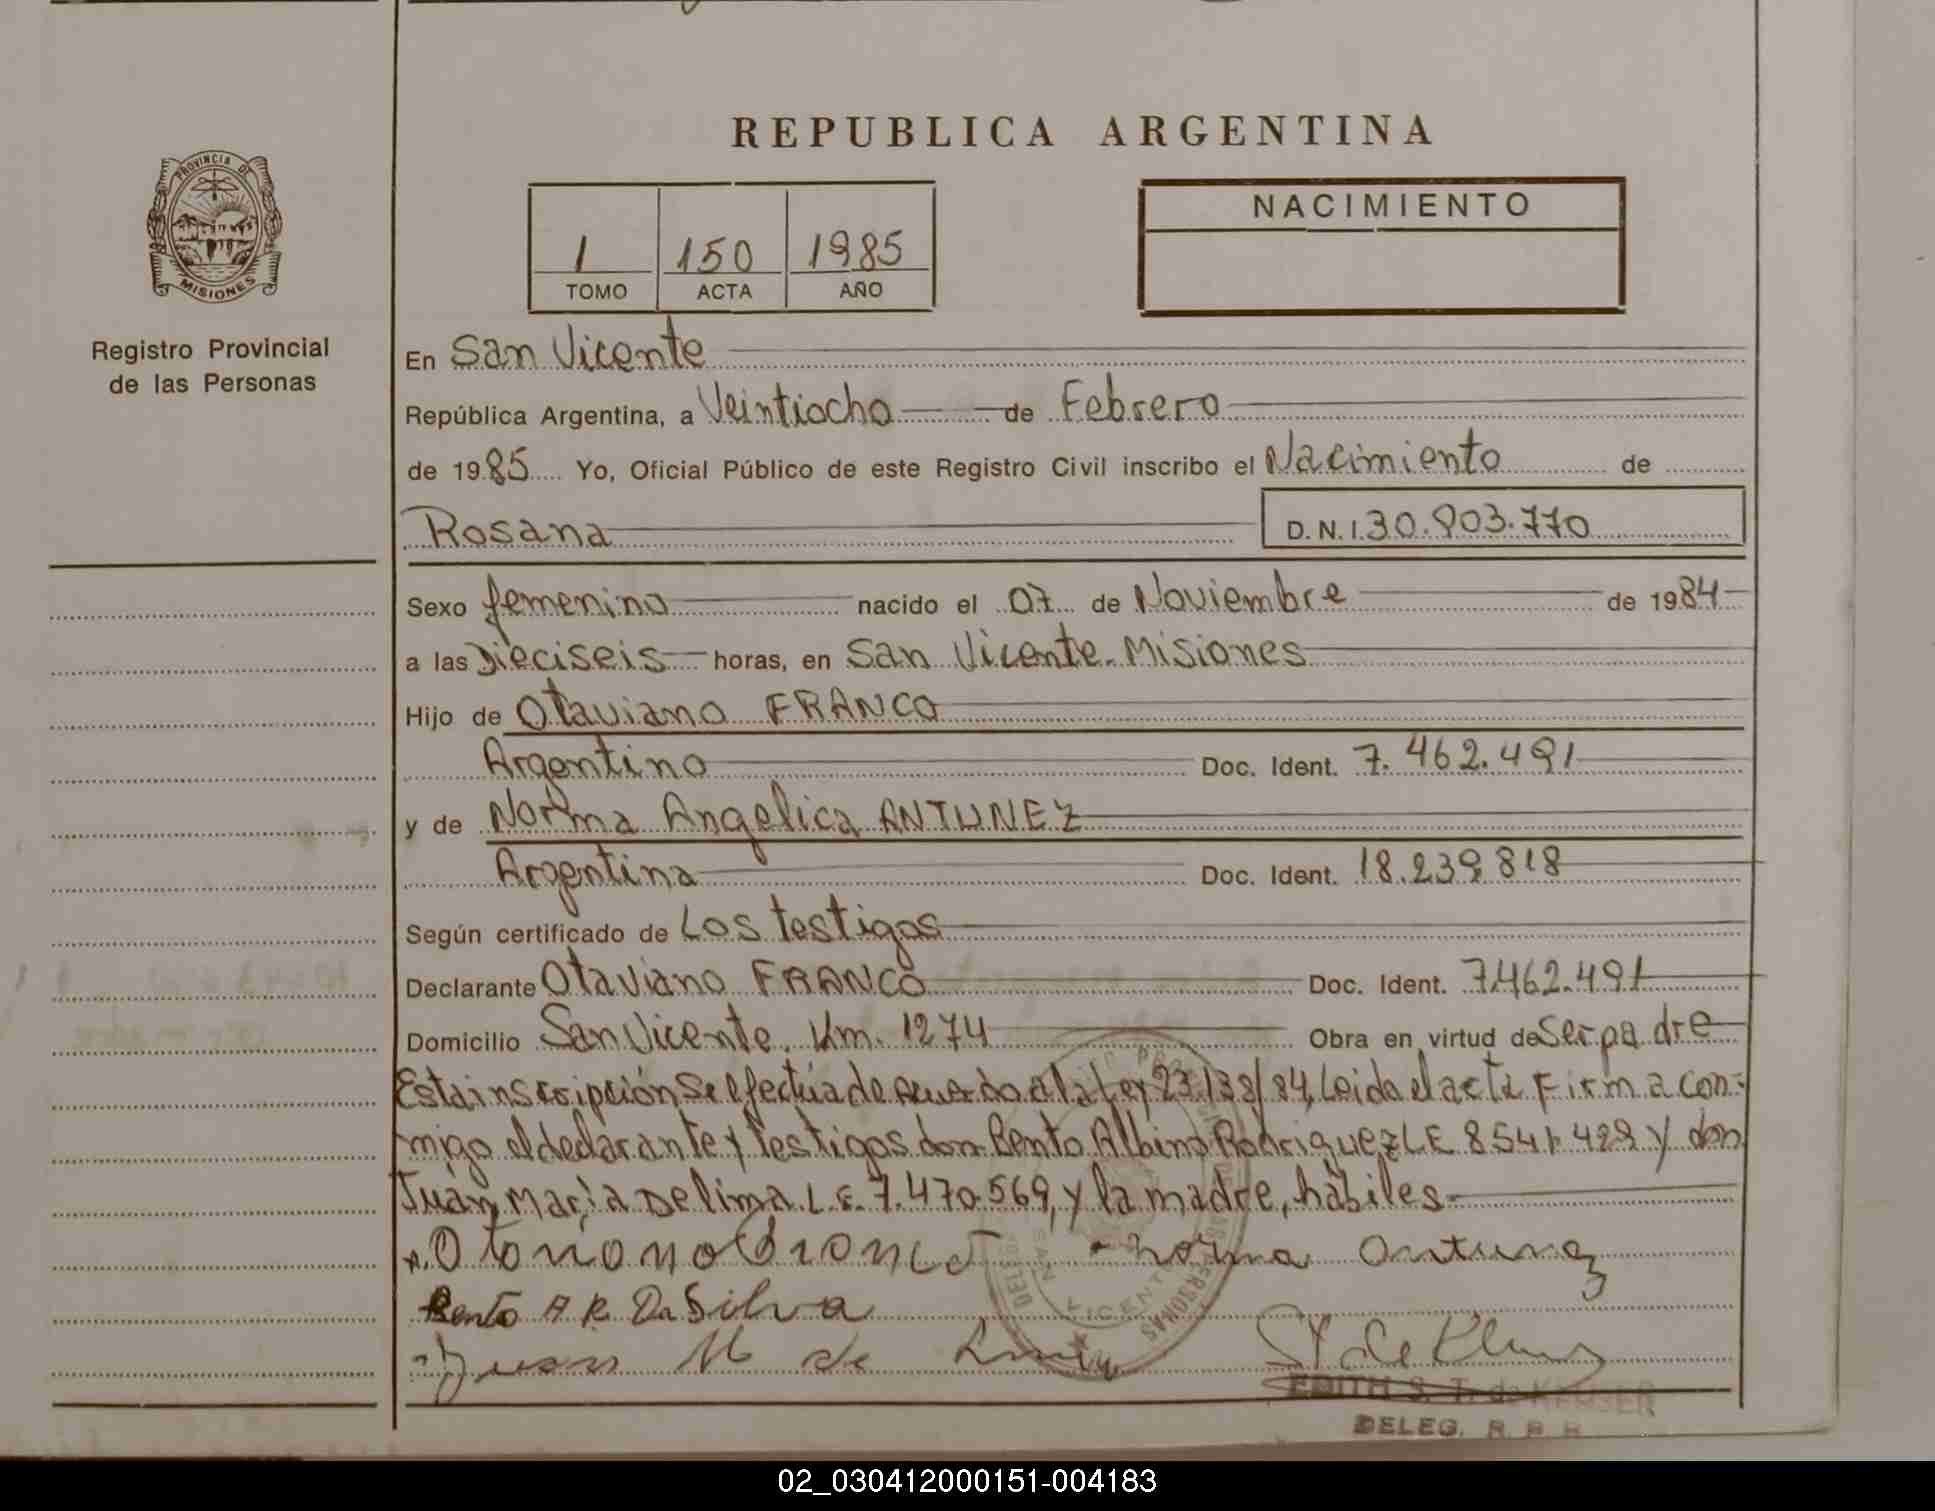 REPUBLICA ARGENTINA
PROVINCIA DE
MISIONES
Registro Provincial
de las Personas
1 150 1985
TOMO ACTA AÑO
NACIMIENTO
En San Vicente
República Argentina, a Veintiocho de Febrero
de 1985 Yo, Oficial Público de este Registro Civil inscribo el Nacimiento de
Rosana D.N.I. 30.903.770
Sexo femenino nacido el 07 de Noviembre de 1984
a las Dieciseis horas, en San Vicente. Misiones
Hijo de Otaviano FRANCO
Argentino Doc. Ident. 7.462.491
y de Norma Angelica ANTUNEZ
Argentina Doc. Ident. 18.239.818
Según certificado de Los testigos
Declarante Otaviano FRANCO Doc. Ident. 7.462.491
Domicilio San Vicente. Km. 1274 Obra en virtud de Ser padre
Esta inscripción se efectúa de acuerdo a la Ley 23.138/84, Leida el acta Firma con-
migo el declarante y Testigos don Bento Albino Rodriguez L E 8.541.429 y don
Juan Maria De lima. L.E. 7.470.569, y la madre, hábiles.
Otoviano Franco Norma Antunez
Bento A R Da Silva
Juan M de Lima
EDITH S. T. de
DELEG. R P P
SAN VICENTE
PERSONAS
02_030412000151-004183